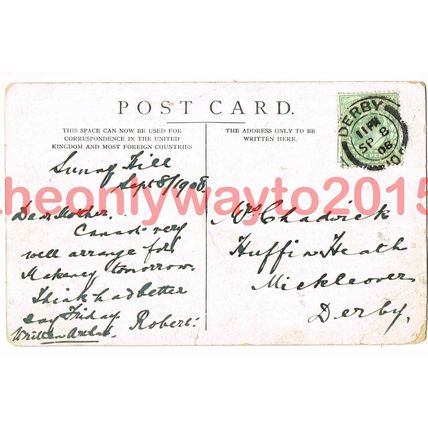 POST CARD.
THIS SPACE CAN NOW BE USED FOR
CORRESPONDENCE IN THE UNITED
KINGDOM AND MOST FOREIGN COUNTRIES
THE ADDRESS ONLY TO BE
WRITTEN HERE.
DERBY
11 PM
SP 8
08
Sunny Hill
Sept 8/1908.
Dear Mother...
Cannot very
well arrange for
Makeney tomorrow.
Think had better
say Friday
Robert.
Written
Mrs Chadwick
Huffin Heath
Mickleover
Derby.
theonlywayto2015